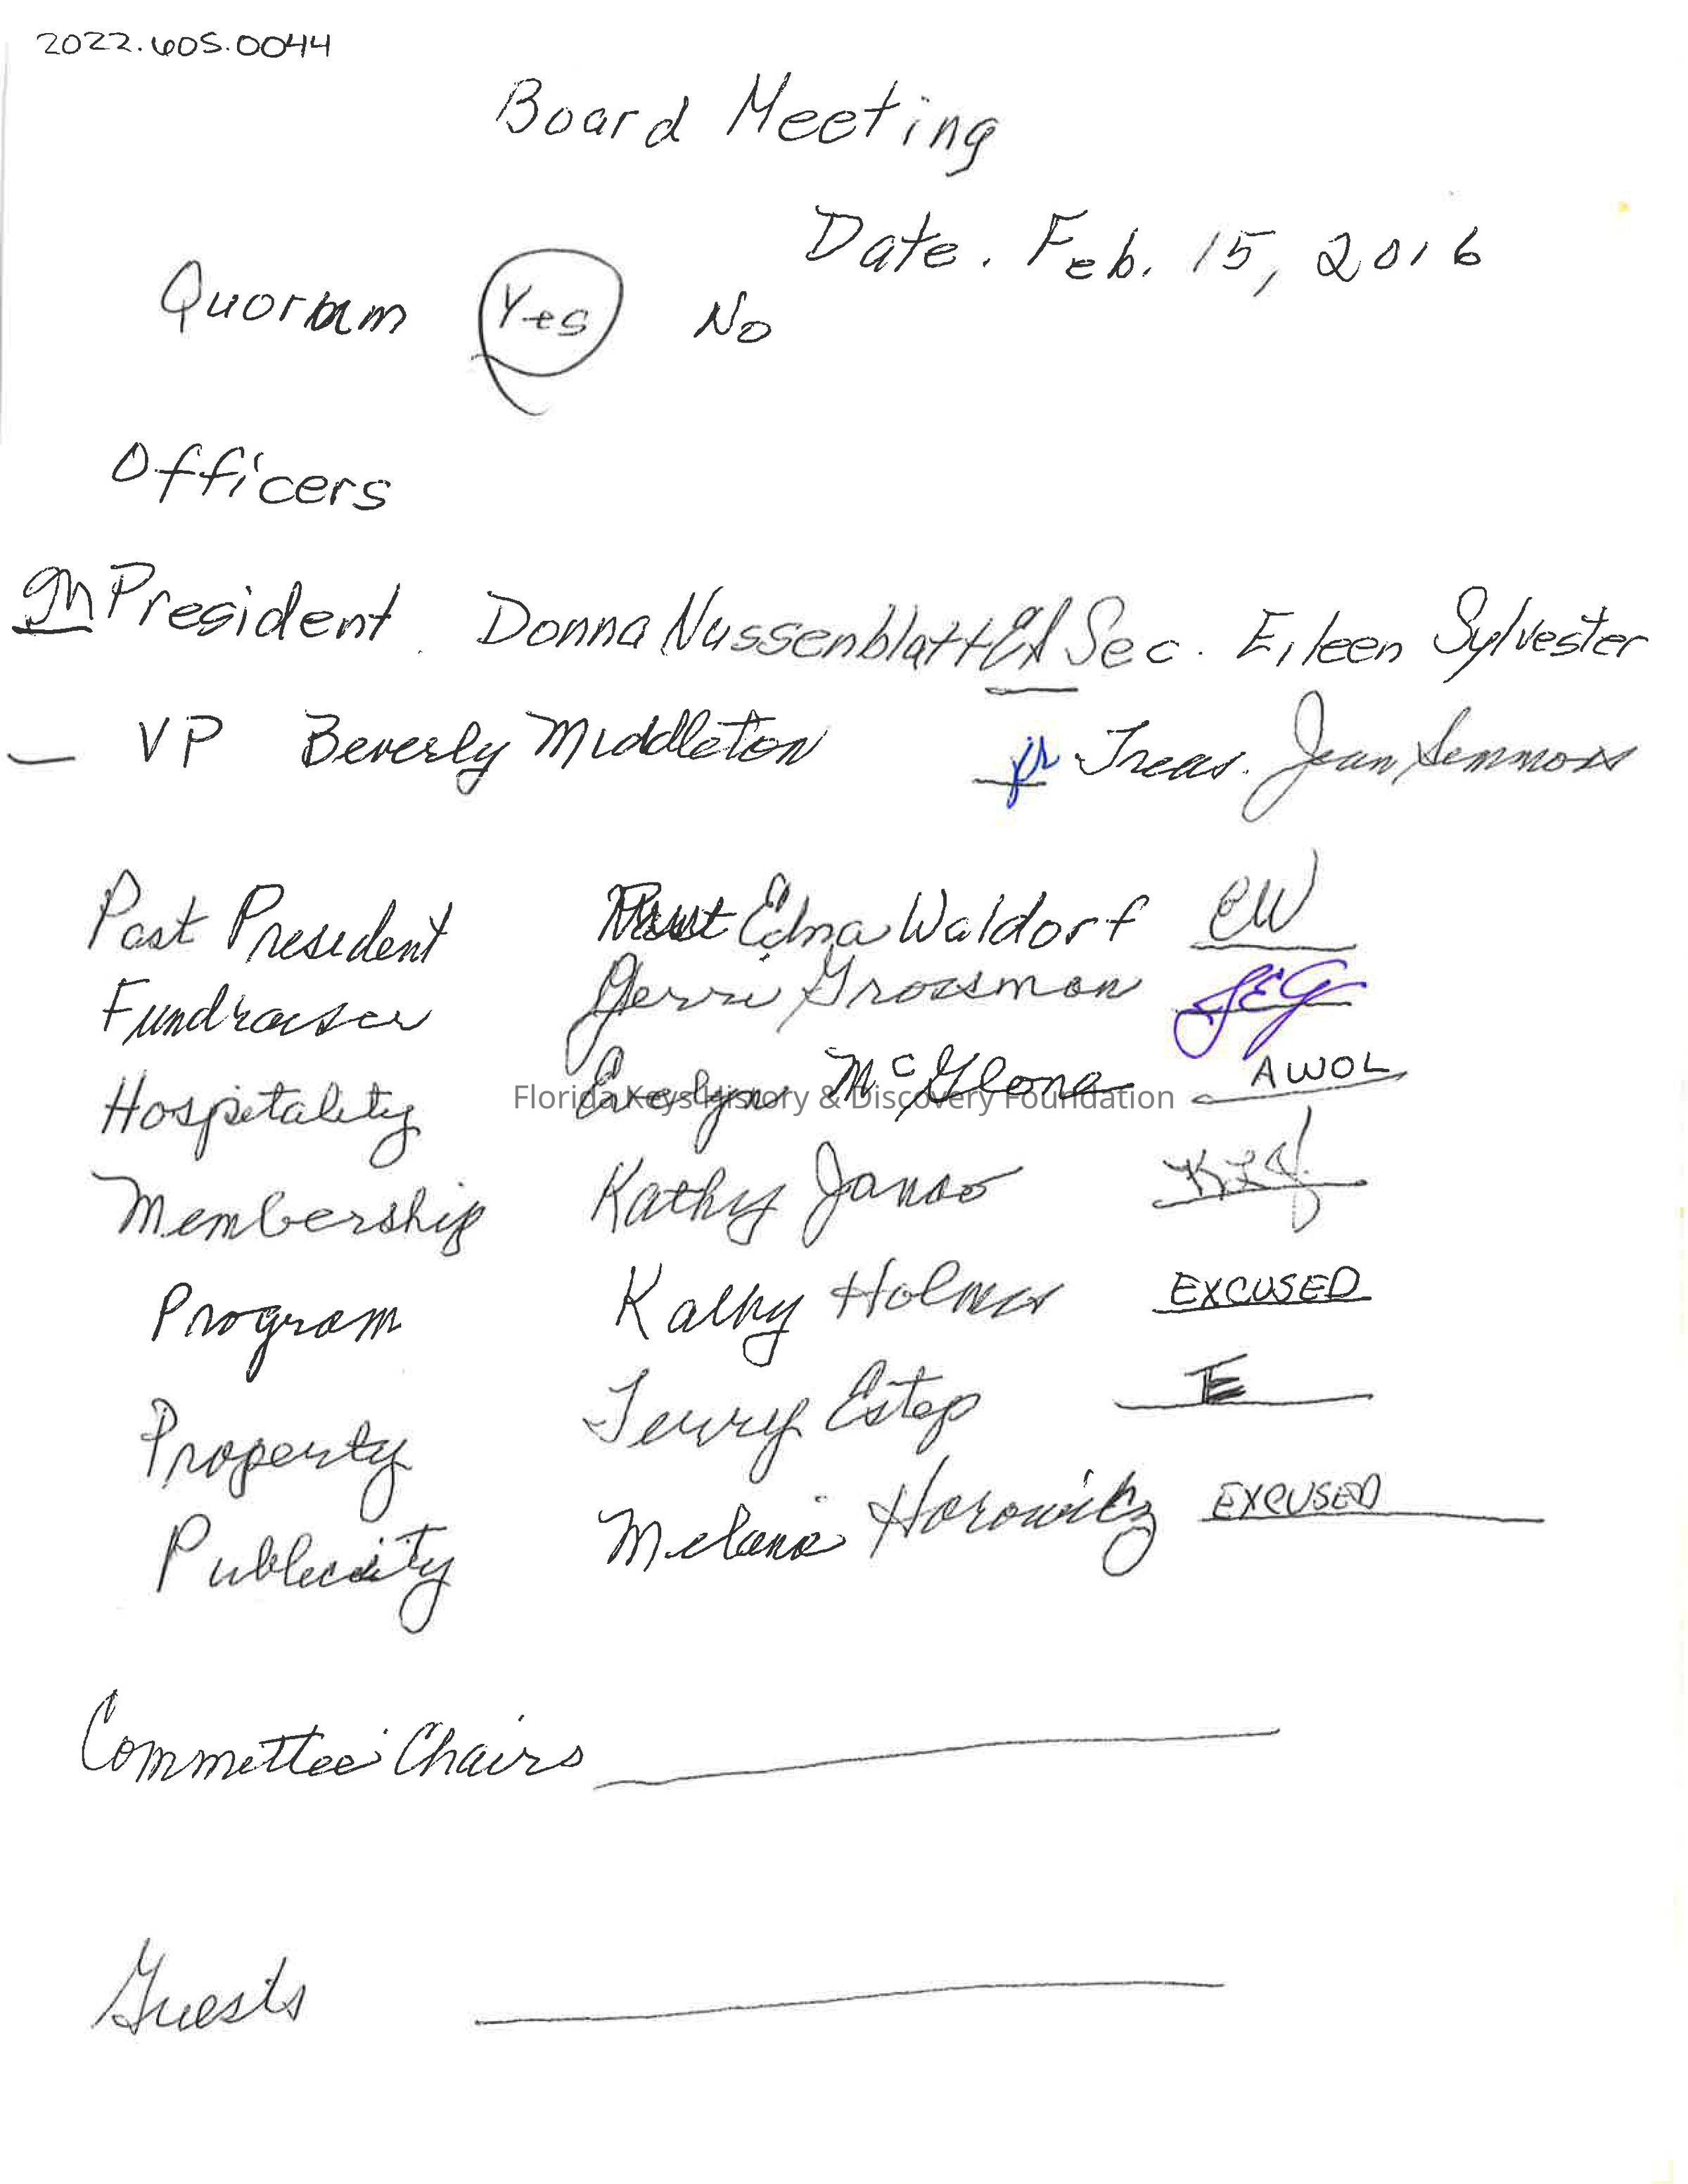 2022.605.0044
Board Meeting
Date. Feb. 15, 2016
Quorum Yes No
Officers
President. Donna Nussenblatt Sec. Eileen Sylvester
VP Beverly Middleton Treas. Jean Semmons
Past President Edna Waldorf EW
Fundraiser Gerri Grossman JEG
Hospitality Evelyn McGlone AWOL
Florida Keys History & Discovery Foundation
Membership Kathy KLJ
Program Kathy Holmes EXCUSED
Property Terry Estep TE
Publicity Horowitz EXCUSED
Committee Chairs
Guests